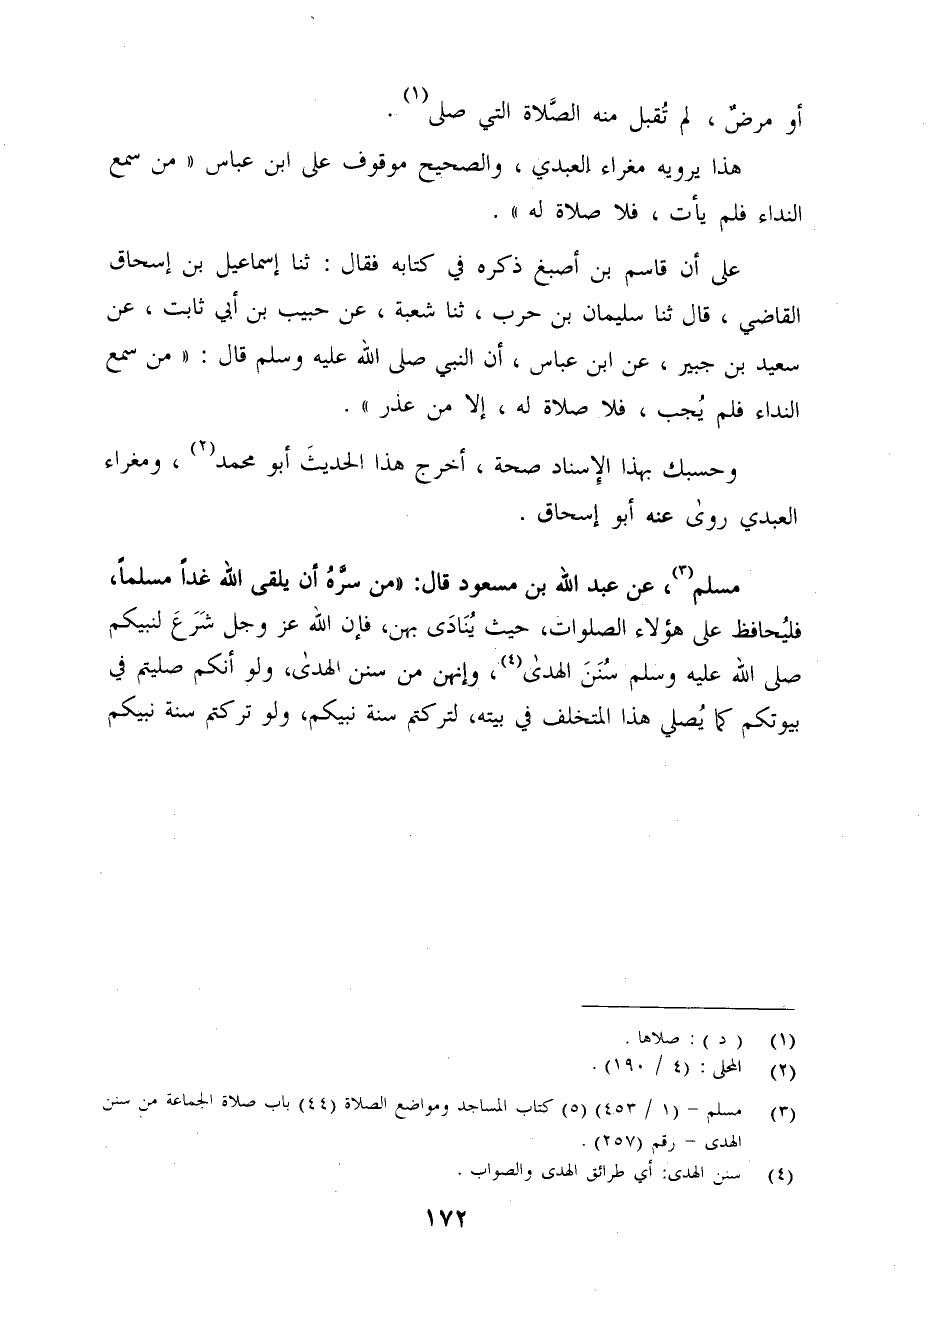 أو مرضٌ ، لم تُقبل منه الصَّلاة التي صلى(١) .
هذا يرويه مغراء العبدي ، والصحيح موقوف على ابن عباس « من سمع
النداء فلم يأت ، فلا صلاة له » .
على أن قاسم بن أصبغ ذكره في كتابه فقال : ثنا إسماعيل بن إسحاق
القاضي ، قال ثنا سليمان بن حرب ، ثنا شعبة ، عن حبيب بن أبي ثابت ، عن
سعيد بن جبير ، عن ابن عباس ، أن النبي صلى الله عليه وسلم قال : « من سمع
النداء فلم يُجب ، فلا صلاة له ، إلا من عذر » .
وحسبك بهذا الإسناد صحة ، أخرج هذا الحديثَ أبو محمد(٢) ، ومغراء
العبدي روىٰ عنه أبو إسحاق .
مسلم(٣)، عن عبد الله بن مسعود قال: «من سرَّهُ أن يلقى الله غداً مسلماً،
فليُحافظ على هؤلاء الصلوات، حيث يُنَادَى بهن، فإن الله عز وجل شَرَعَ لنبيكم
صلى الله عليه وسلم سُنَنَ الهدىٰ(٤)، وإنهن من سنن الهدىٰ، ولو أنكم صليتم في
بيوتكم كما يُصلي هذا المتخلف في بيته، لتركتم سنة نبيكم، ولو تركتم سنة نبيكم
(١) ( د ) : صلاها .
(٢) المحلى : (٤ / ١٩٠) .
(٣) مسلم – (١ / ٤٥٣) (٥) كتاب المساجد ومواضع الصلاة (٤٤) باب صلاة الجماعة من سنن
الهدى – رقم (٢٥٧) .
(٤) سنن الهدى: أي طرائق الهدى والصواب .
١٧٢